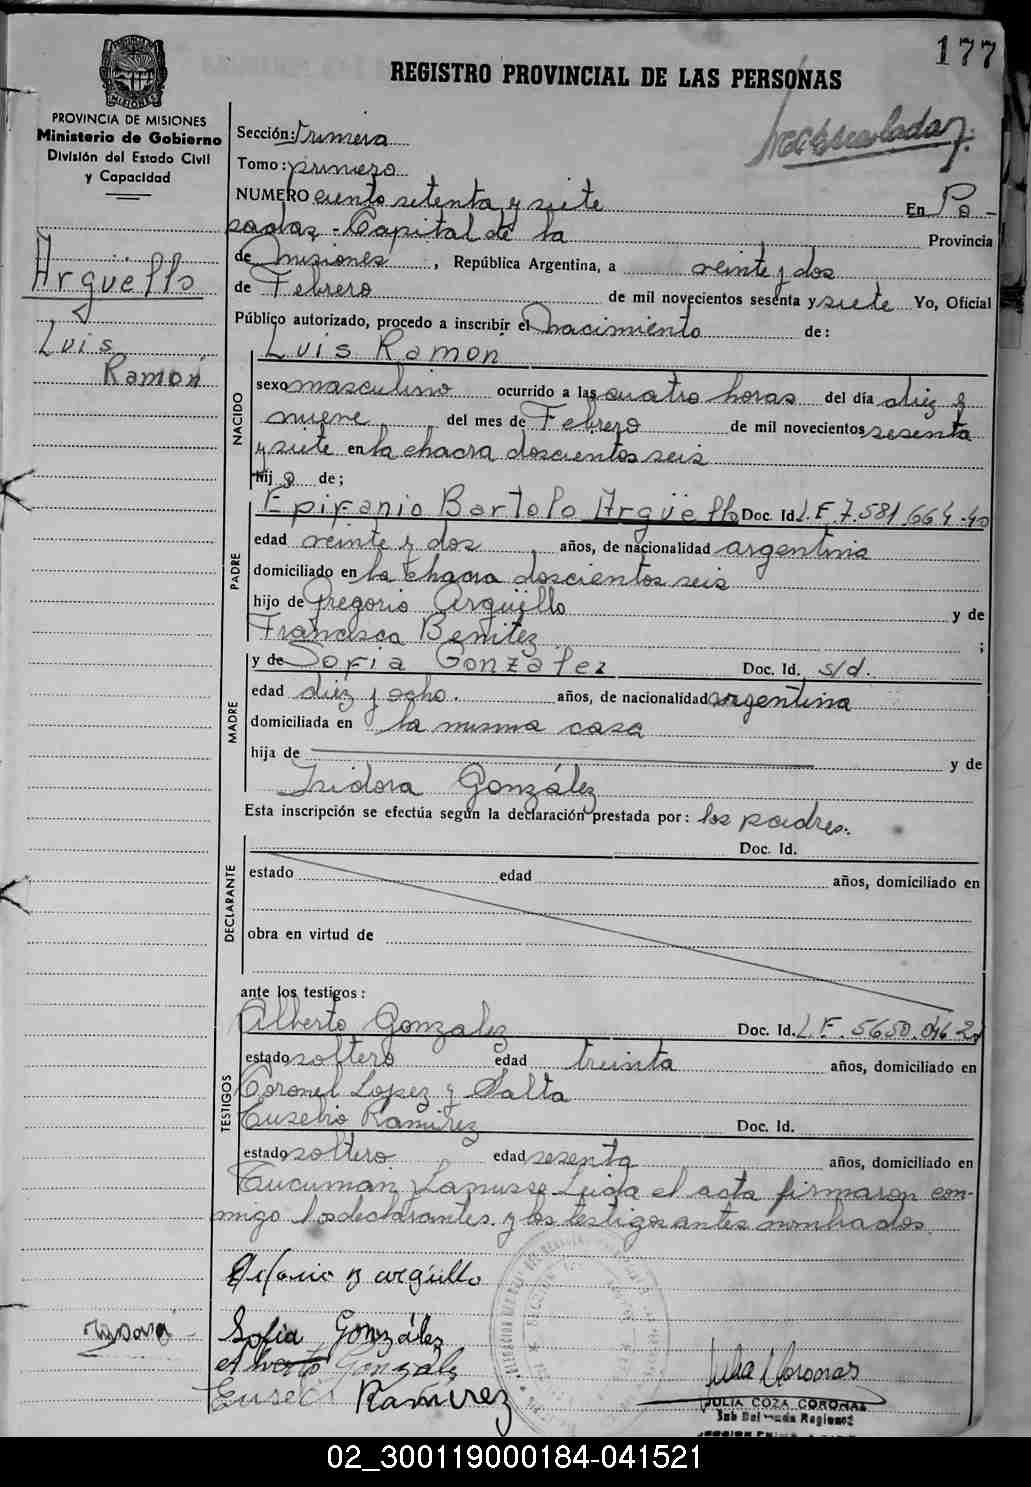 177
REGISTRO PROVINCIAL DE LAS PERSONAS
PROVINCIA DE MISIONES
Ministerio de Gobierno
División del Estado Civil
y Capacidad
Sección: Primera
Tomo: primero
NUMERO ciento setenta y siete En Po-
sadas,- Capital de la Provincia
de Misiones, República Argentina, a veinte y dos
de Febrero de mil novecientos sesenta y siete Yo, Oficial
Público autorizado, procedo a inscribir el nacimiento de:
Argüello
Luis
Ramón
NACIDO
Luis Ramón
sexo masculino ocurrido a las cuatro horas del día diez y
nueve del mes de Febrero de mil novecientos sesenta
y siete en la chacra doscientos seis
hijo de;
PADRE
Epifanio Bartolo Argüello Doc. Id. L.E. 7.581.664-40
edad veinte y dos años, de nacionalidad argentina
domiciliado en la chacra doscientos seis
hijo de Gregorio Argüello y de
Francisca Benitez ;
MADRE
y de Sofia Gonzalez Doc. Id. s/d.
edad diez y ocho. años, de nacionalidad argentina
domiciliada en la misma casa
hija de y de
Isidora González
Esta inscripción se efectúa según la declaración prestada por: los padres.
DECLARANTE
Doc. Id.
estado edad años, domiciliado en
obra en virtud de
ante los testigos:
TESTIGOS
Alberto Gonzalez Doc. Id. L.E. 5650.046
estado soltero edad treinta años, domiciliado en
Coronel Lopez y Salta
Eusebio Ramirez Doc. Id.
estado soltero edad sesenta años, domiciliado en
Tucuman y Lanusse Leida el acta firmaron con-
migo los declarantes y los testigos antes nombrados
Epifanio B argüello
Sofia González
Alberto Gonzalez
Ramirez
Julia Coronas
JULIA COZA CORONAS
02_300119000184-041521